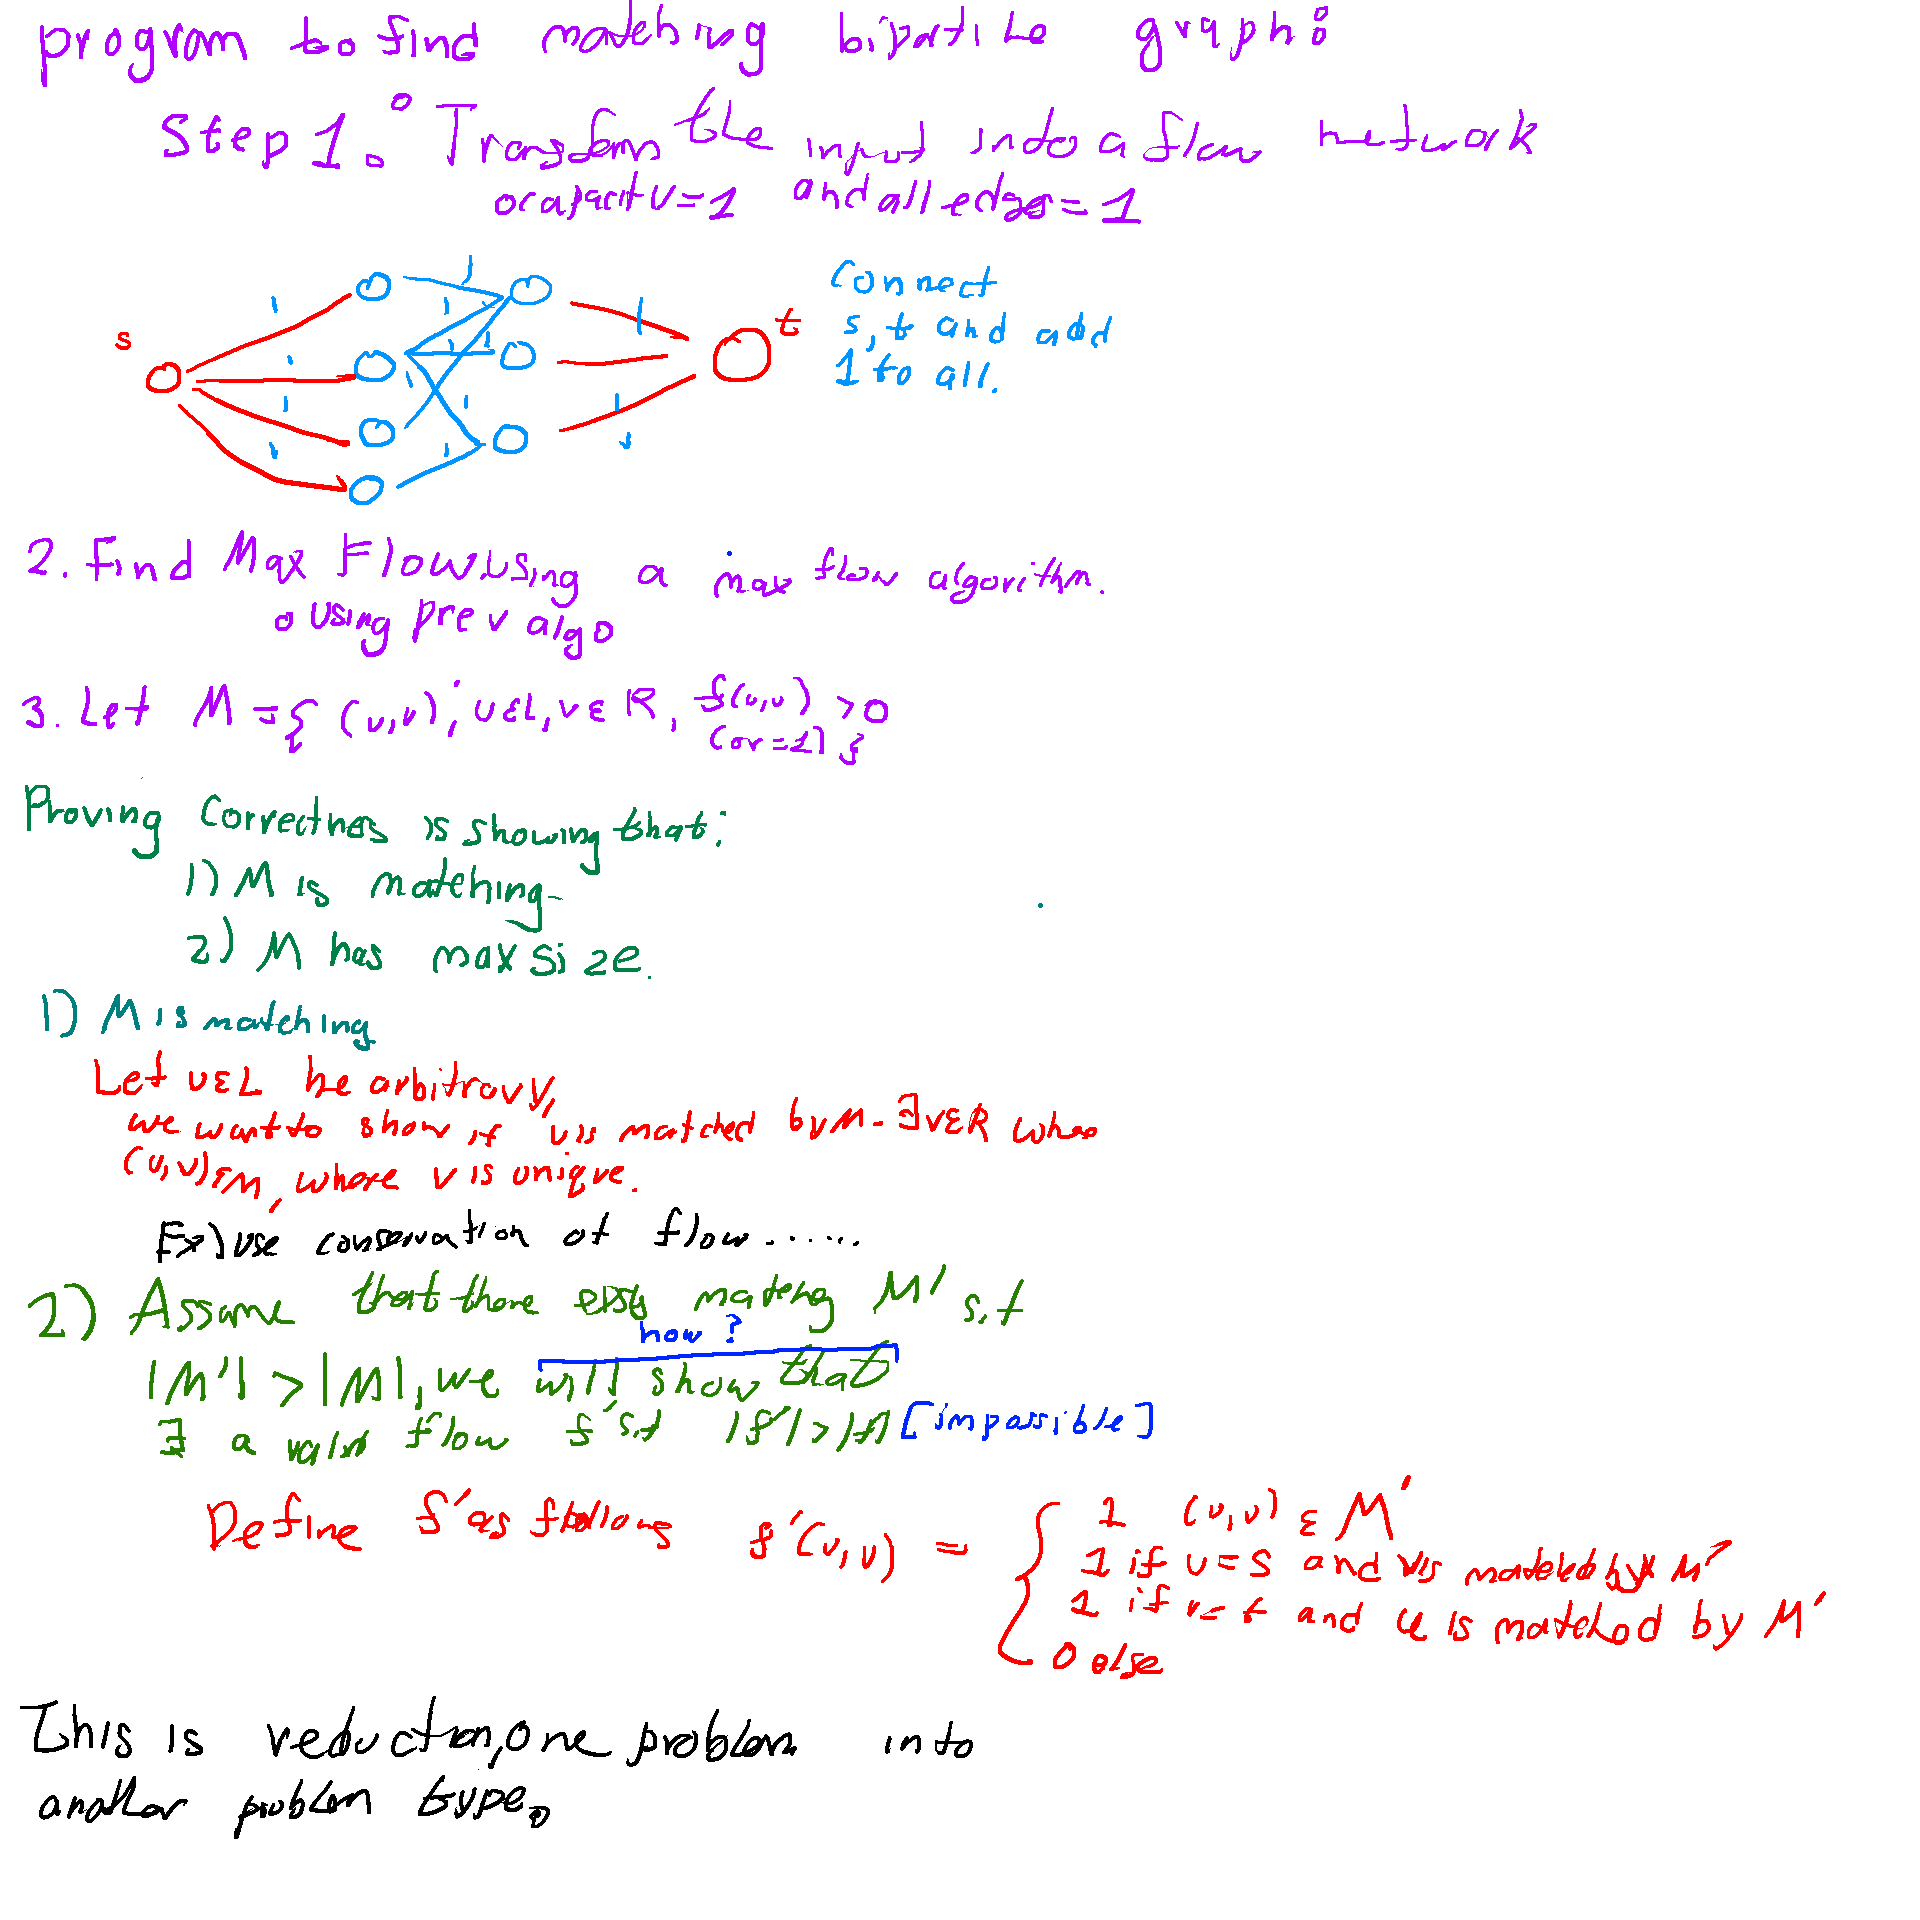 program to find matching bipartite graph:
Step 1: Transform the input into a flow network
o capacity = 1 and all edges = 1
s
t
Connect
s, t and add
1 to all.
1 1 1 1 1 1 1 1 1 1 1 1
2. Find Max Flow using a max flow algorithm.
o Using prev algo
3. Let M = { (u,v); u ε L, v ε R, f(u,v) > 0
(or = 1) }
Proving Correctnes is showing that:
1) M is matching
2) M has max size.
1) M is matching
Let u ε L be arbitrary,
we want to show if u is matched by M - ∃ v ε R where
(u,v) ε M, where v is unique.
Ex) use conservation of flow......
2) Assume that there exists matching M' s.t
how?
|M'| > |M|, we will show that
∃ a valid flow f' s.t |f'| > |f| [impossible]
Define f' as follows f'(u,v) = { 1 (u,v) ε M'
1 if u = s and v is matched by M'
1 if v = t and u is matched by M'
0 else
This is reduction, one problem into
another problem type.